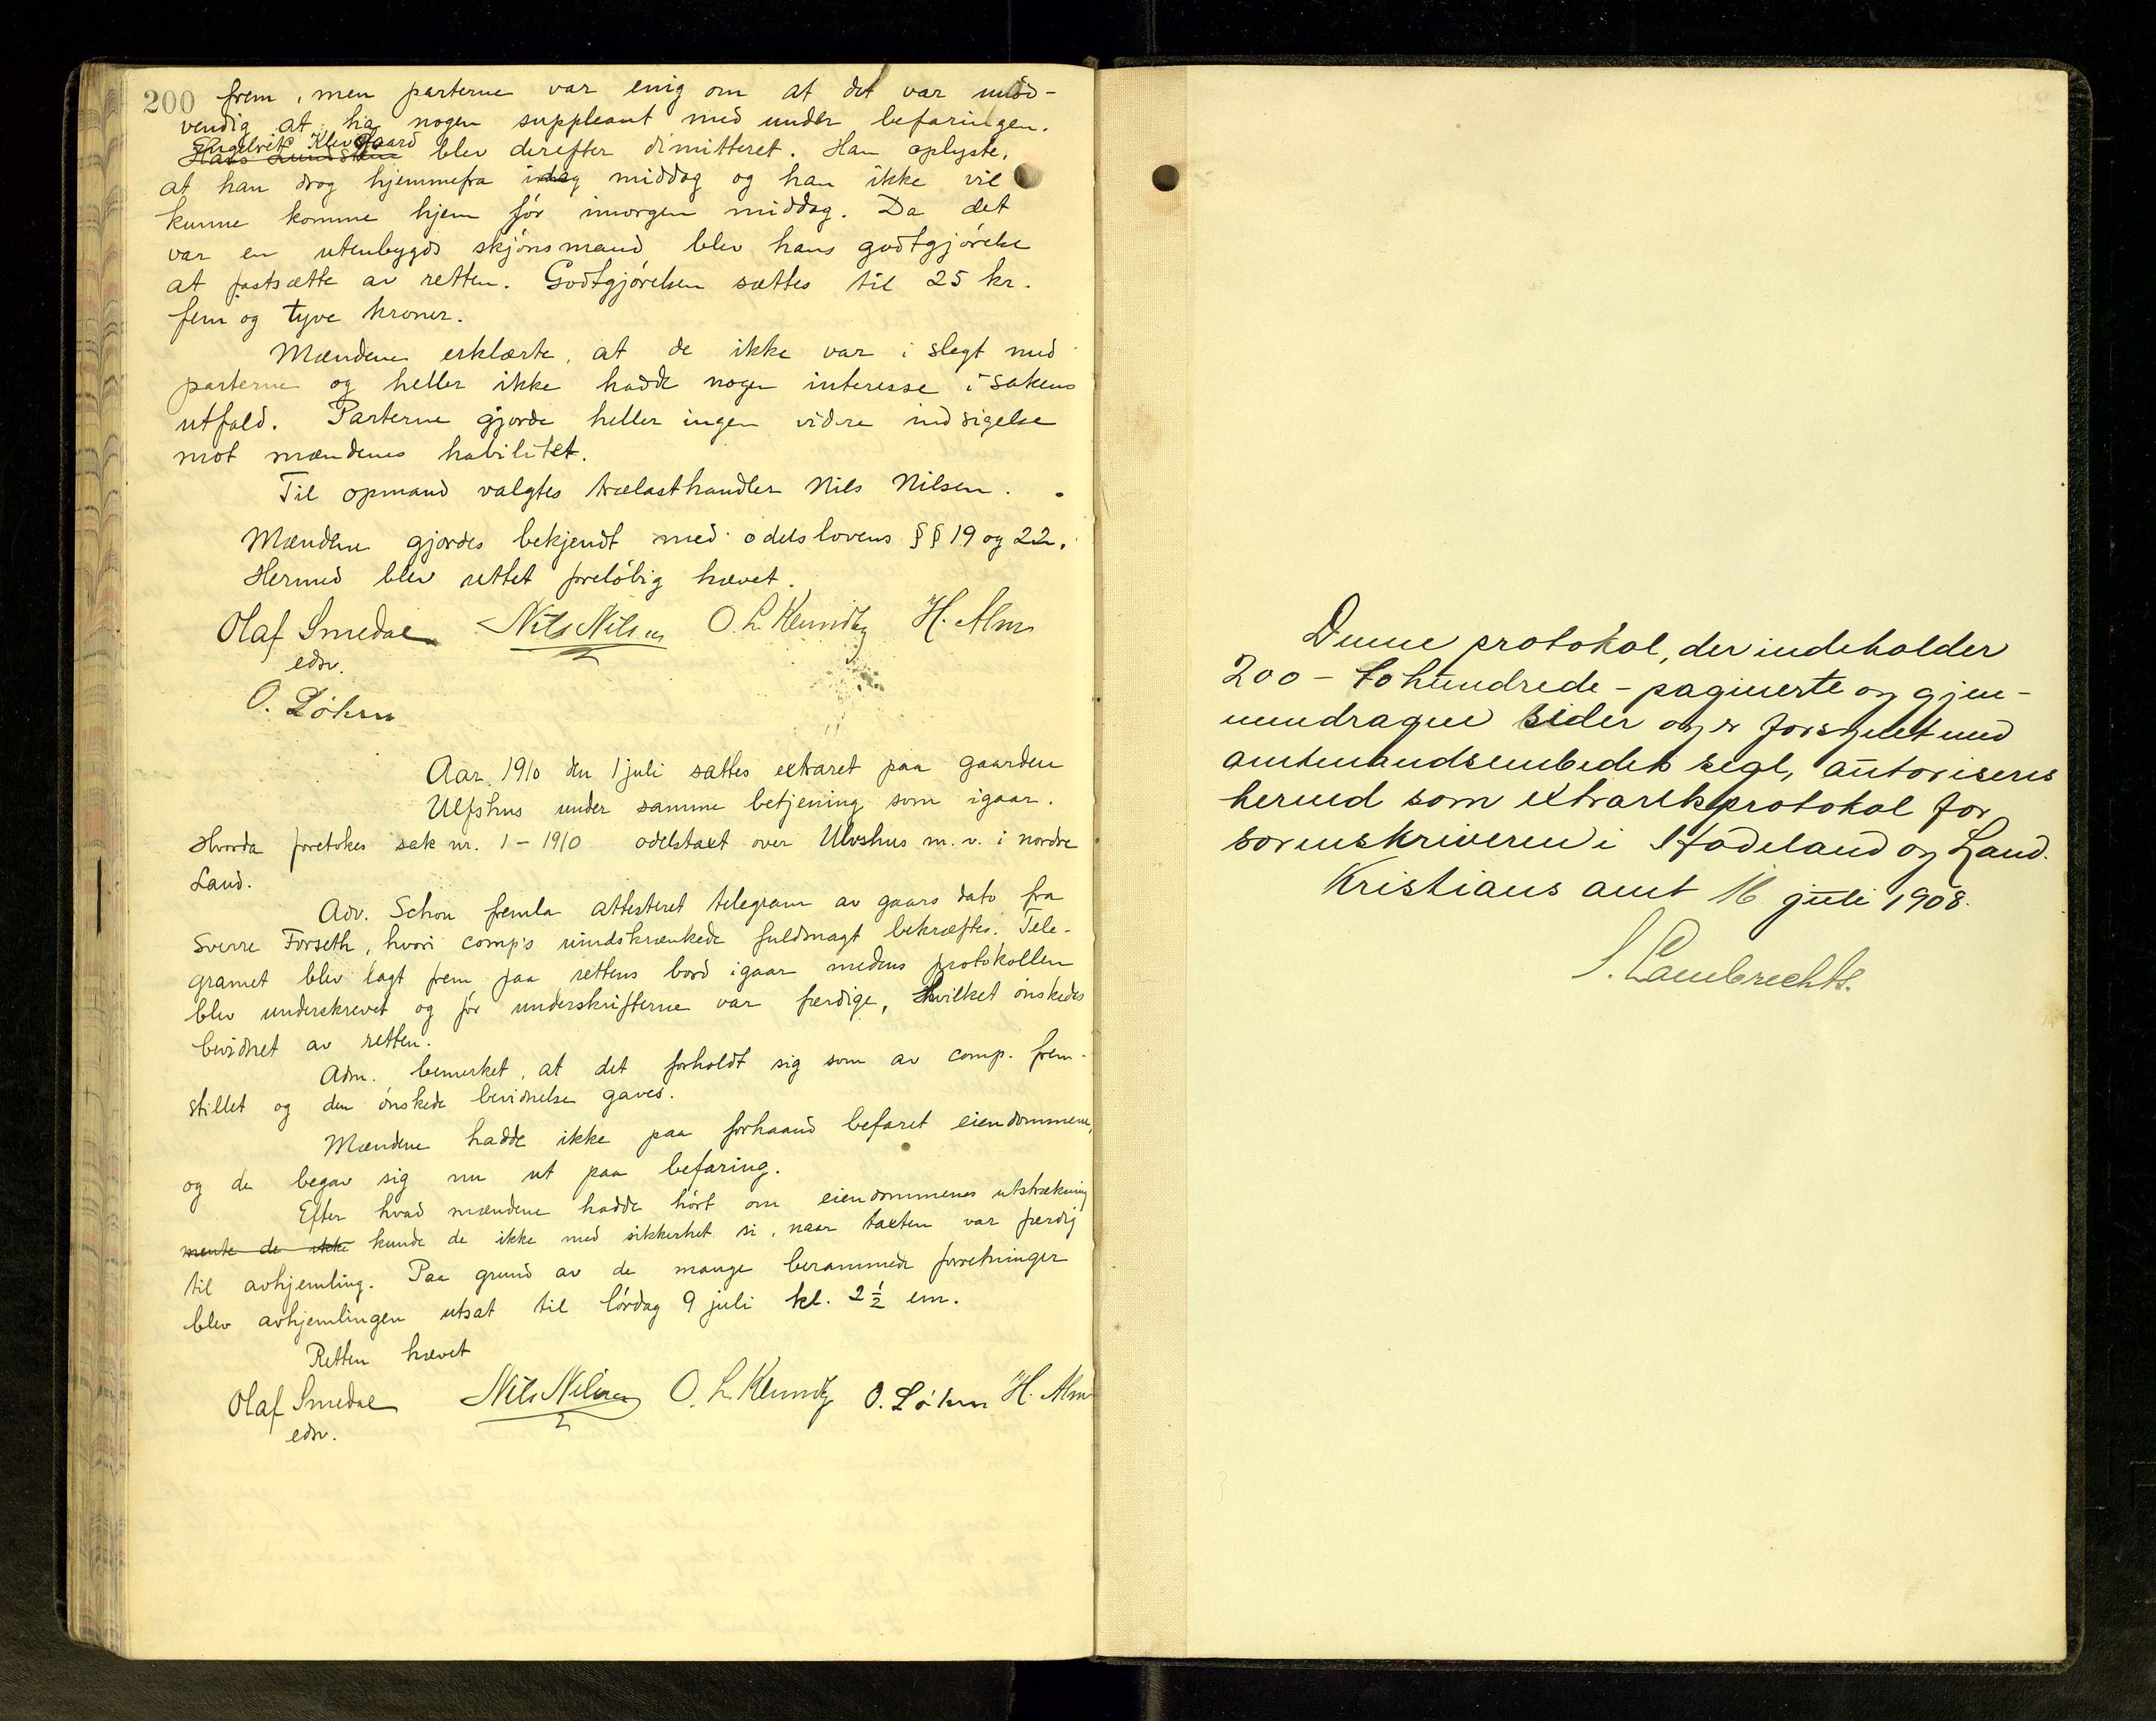 200 frem, men parterne var enig om at det var unød-
vendig at ha nogen suppleant med under befaringen.
Engelrik Klevgaard
Hans Lundsten blev derefter dimitteret. Han oplyste,
at han drog hjemmefra idag middag og han ikke vil
kunne komme hjem før imorgen middag. Da det
var en utenbygds skjønsmand blev hans godtgjørelse
at fastsætte av retten. Godtgjørelsen sættes til 25 kr.
fem og tyve kroner.
Mændene erklærte, at de ikke var i slegt med
parterne og heller ikke hadde nogen interesse i sakens
utfald. Parterne gjorde heller ingen videre indsigelse
mot mændenes habilitet.
Til opmand valgtes trælasthandler Nils Nilsen.
Mændene gjordes bekjendt med odelslovens §§ 19 og 22.
Hermed blev rettet foreløbig hævet.
Olaf Smedal Nils Nilsen O. L. Klundby H. Alm
edsv.
O. Løken
Aar 1910 den 1 juli sattes extraret paa gaarden
Ulfshus under samme betjening som igaar.
Hvorda foretokes sak nr. 1 - 1910 odelstaxt over Ulvshus m. v. i nordre
Land.
Adv. Schou fremla attesteret telegram av gaars dato fra
Sverre Forseth, hvori comp's uindskrænkede fuldmagt bekræftes. Tele-
gramet blev lagt frem paa rettens bord igaar medens protokollen
blev underskrevet og før underskrifterne var færdige, hvilket ønskedes
bevidnet av retten.
Adm. bemerket, at det forholdt sig som av comp. frem-
stillet og den ønskede bevidnelse gaves.
Mændene hadde ikke paa forhaand befaret eiendommene,
og de begav sig nu ut paa befaring.
Efter hvad mændene hadde hørt om eiendommenes utstrækning
mente de ikke kunde de ikke med sikkerhet si, naar taxten var færdig
til avhjemling. Paa grund av de mange berammede forretninger
blev avhjemlingen utsat til lørdag 9 juli kl. 2 ½ em.
Retten hævet
Olaf Smedal Nils Nilsen O. L. Klundby O. Løken H. Alm
edsv.
Denne protokol, der indeholder
200 - tohundrede - paginerte og gjen-
nemdragne sider og er forsynet med
amtmandsembedets segl, autoriseres
herved som extraretsprotokol for
sorenskriveren i Hadeland og Land.
Kristians amt 16 juli 1908.
S. Lambrechts.